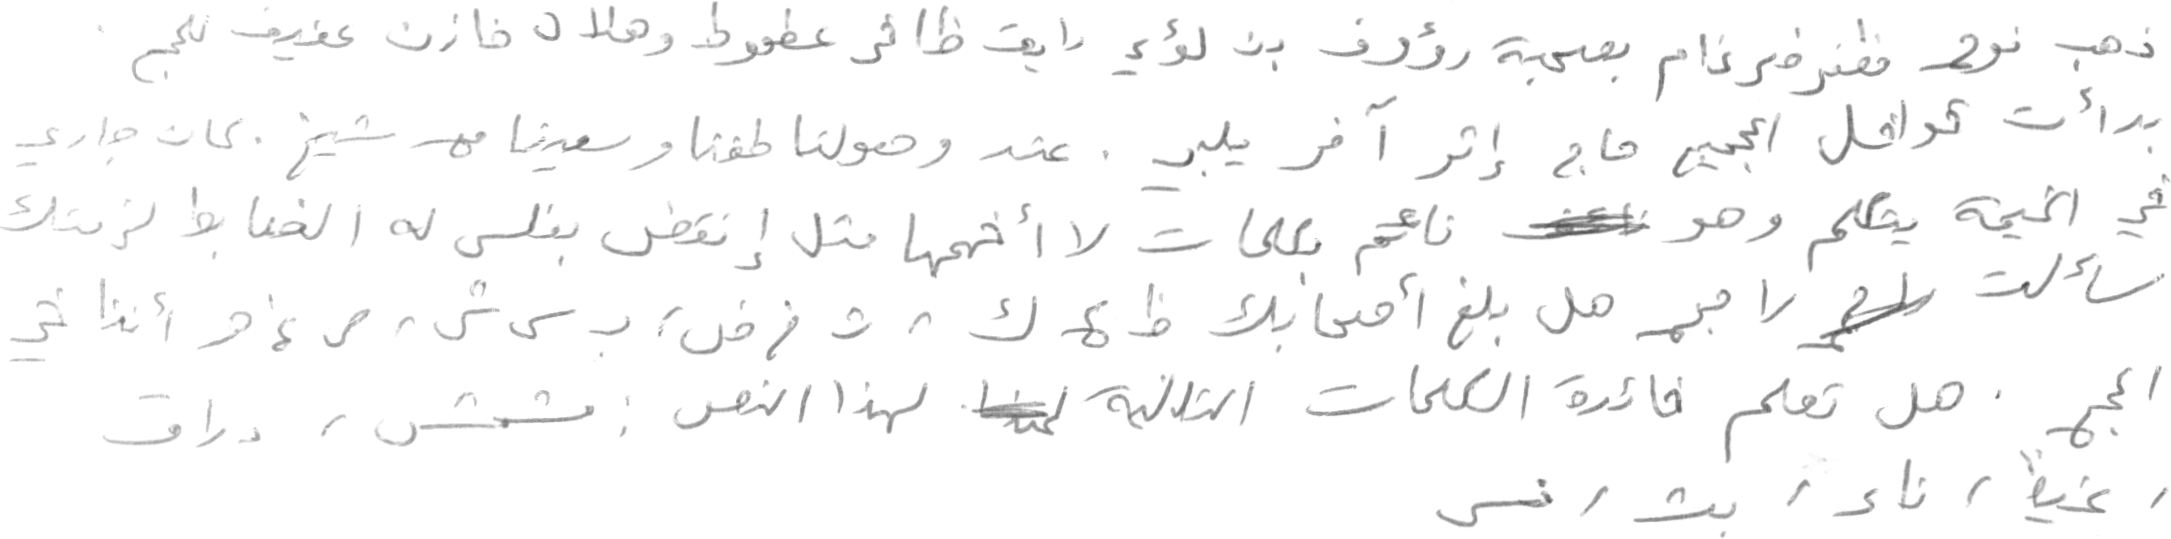 ذهب نوح مظفر ضرغام بصحبة رؤوف بن لؤي رايق ظافر عطووط وهلال خازن عفيف للحج .
بدأت قوافل الحجيج حاج إثر آخر يلبي . عند وصولنا طفنا وسعينا مع شيخ . كان جاري
في الخيمة يتكلم وهو نائم بكلمات لا أفهمها مثل إنقض بغلس له الضابط لزمتك
سائلت راجح هل بلغ أصحابك ظ ك ، ث ض ، س ش ، أننا في
الحج . هل تعلم فائدة الكلمات التالية لهذا النص : مشمش ، دراق
، غيظ ، ناء ، بث ، خس